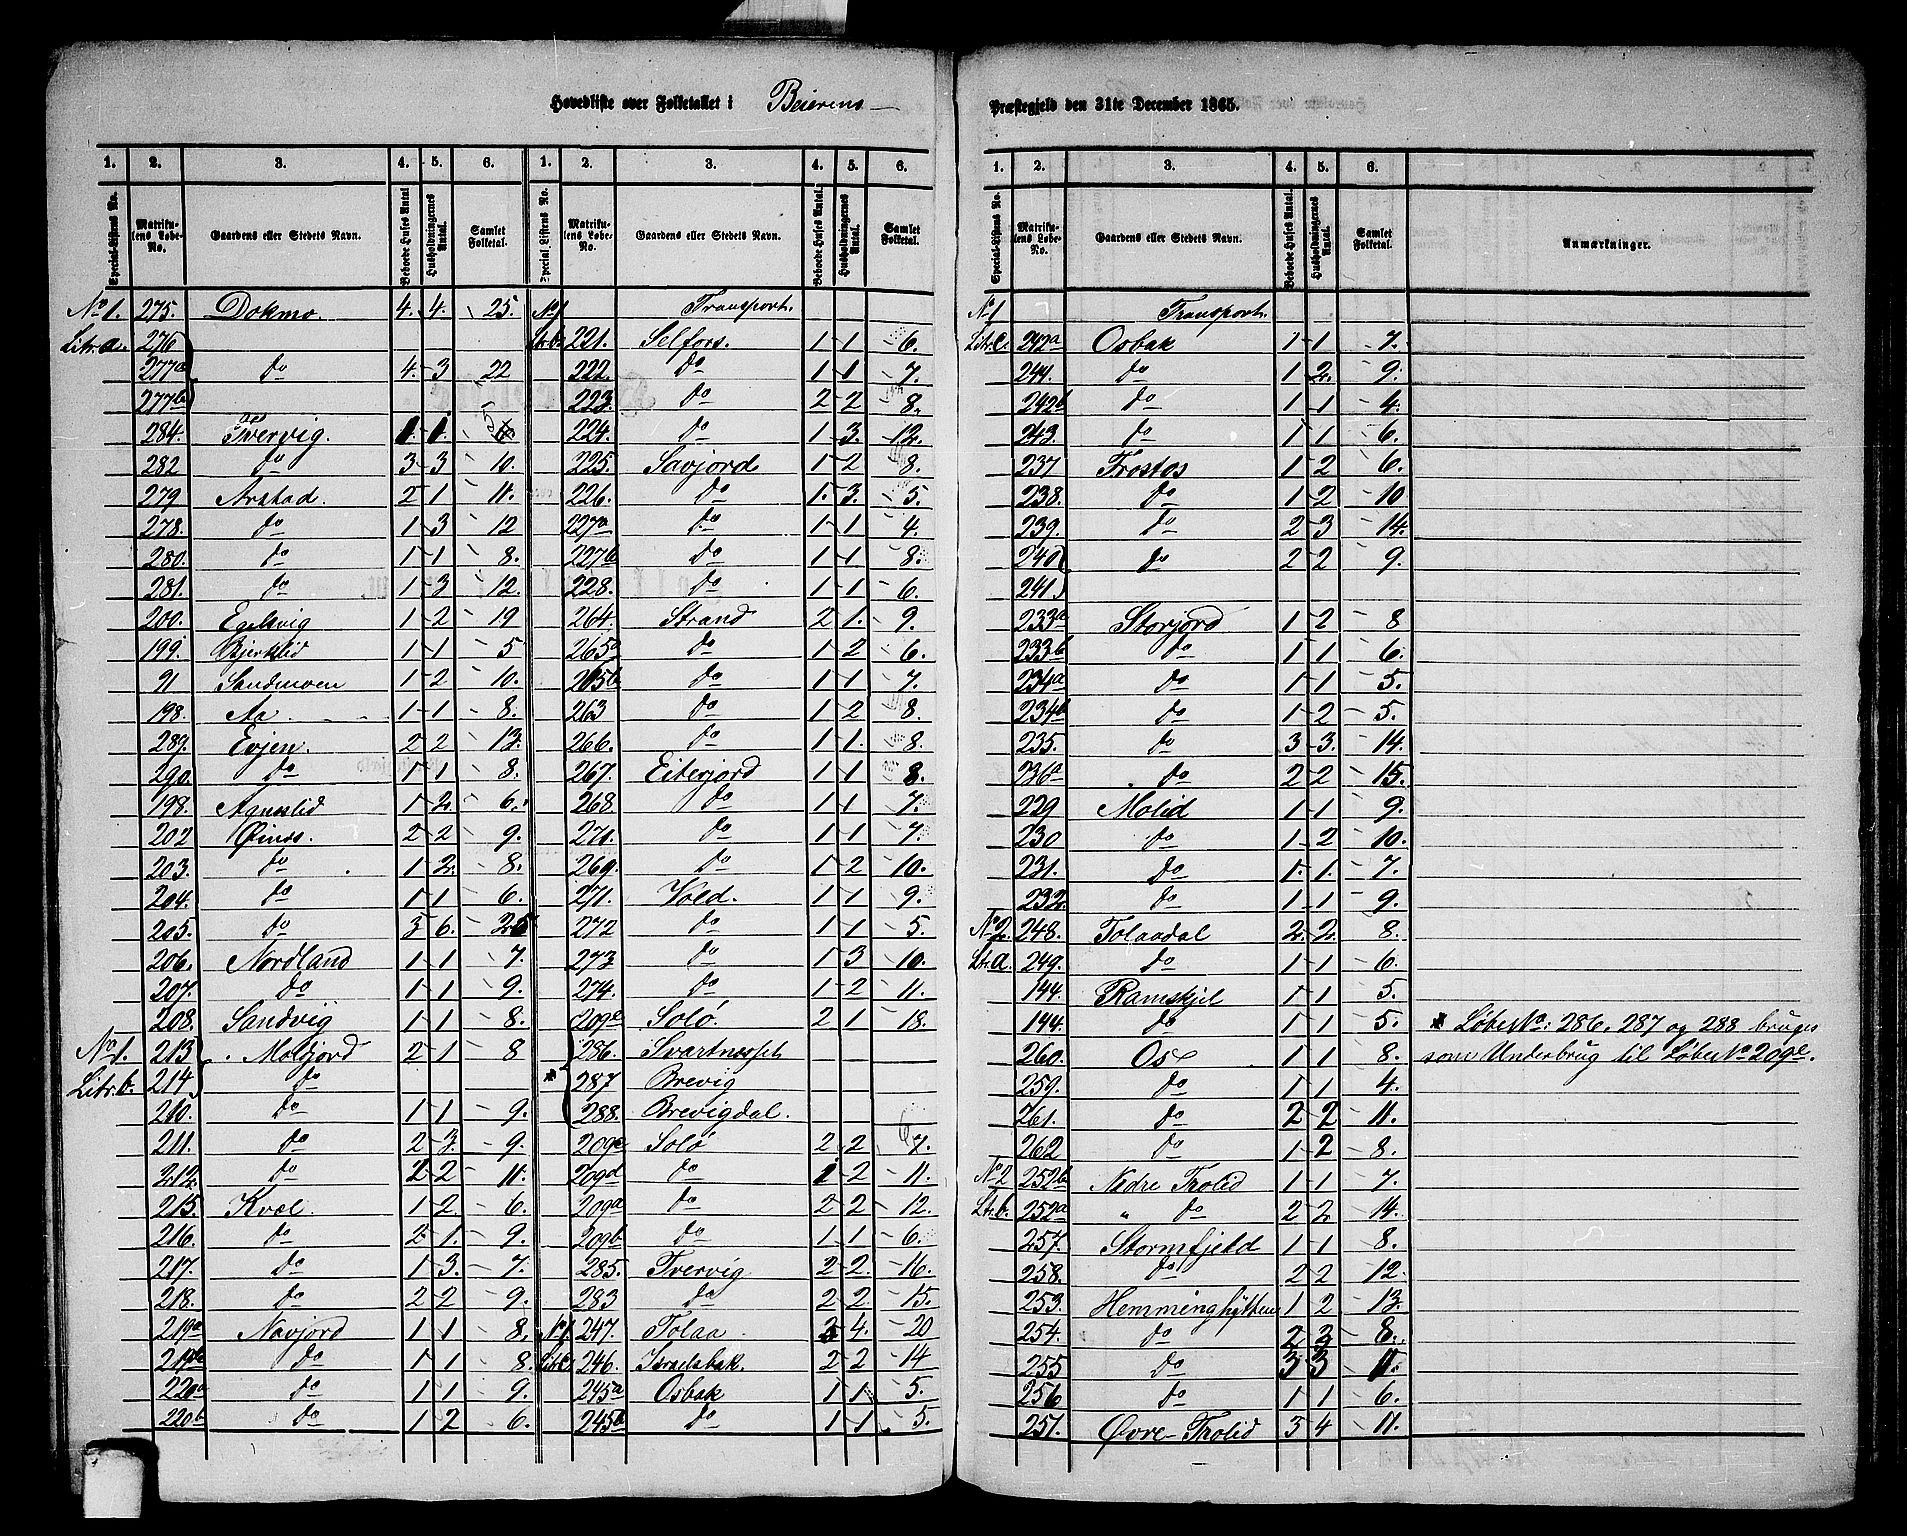 Hovedliste over Folketallet i Beierens
Præstegjeld den 31te December 1865.
1. 2. 3. 4. 5. 6. 1. 2. 3. 4. 5. 6.
Special-Listens No. Matrikulens Løbe-No. Gaardens eller Stedets Navn. Beboede Huses Antal Husholdningernes Antal. Samlet Folketal. Special Listens No. Matrikulens Løbe-No. Gaardens eller Stedets Navn. Beboede Huses Antal. Husholdningernes Antal. Samlet Folketal.
No 1. 275. Dokmo. 4. 4. 25.
Litr. a. 276
277a do 4. 3 22
277b
284. Tvervig. 1. 1. 5
282 do 3 3 10.
279 Arstad. 2 1 11.
278. do 1 3 12
280. do 1 1 8.
281. do 1 3 12.
200. Eggevig 1 2 19
199. Bjerklid 1 1 5
91 Sandmoen 1 2 10.
198. Aa 1 1 8.
289. Evjen. 2 2 13.
290. do 1 1 8.
198. Agneslid 1 2. 6.
202 Øines. 2 2 9.
203. do 1 2. 8.
204. do 1 1 6.
205. do 3 6. 25
206. Nordland 1 1 7.
207. do 1 1 9.
208. Sandvig 1 1 8.
No 1. 213 Moldjord 2 1 8
Litr. b. 214 do
210. do 1 1 9.
211. do 2 3. 9.
212. do 2 2 11.
215. Kvæl. 1 2. 6.
216. do 2 1. 9.
217. do 1 3. 7.
218. do 2 2 9.
219a Navjord 1 1 8.
219b do 1 1 8.
220a do 1 1 9.
220b do 1 2 6.
No 1 Transport.
Litr. b. 221. Selfors. 1 1 6.
222. do 1 1 7.
223. do 2 2 8.
224. do 1 3. 12.
225. Savjord 1 2 8.
226. do 1. 3. 5.
227a do 1 1 4.
227b do 1 1 8.
228. do 1 1 6.
264. Strand 2 1. 9.
265a do 1 2 6.
265b do 1 1 7.
263 do 1 2 8.
266. do 1 1. 8.
267. Eiterjord 1 1 8.
268. do 1 1 7.
271. do 1 1 7.
269. do 1 2 10.
271. Vold. 1 1 9.
272 do 1 1 5.
273 do 1 3 10.
274. do 1 2 11.
209e Solö. 2 1 18.
286. Svartnesset
287 Brevig
288. Brevigdal.
209c Solö 2 2 6 7.
209d do 1 2 11.
209a do 2 2 12.
209b do 1 1 6.
285. Tvervig 2 2. 16.
283 do 2 2. 15.
No 1. 247. Tolaa 3 4. 20
Litr. c 246. Israelsbak. 2 2 14
245a Osbak 1 1 5.
245b do 1 1 5.
1. 2. 3. 4. 5. 6.
Special-Listens No. Matrikulens Løbe-No. Gaardens eller Stedets Navn. Beboede Huses Antal. Husholdningernes Antal. Samlet Folketal. Anmærkninger.
No 1 Transport.
Litr. c. 242a Osbak 1 1 7.
244. do 1 2. 9.
242b do 1 1 4.
243. do 1 1 6.
237 Trostos 1 2 6.
238. do 1 2 10
239. do 2 3 14.
240 do 2 2 9.
241.
233a Storjord 1 2 8
233b do 1 1 6.
234a do 1 1 5.
234b do 1 2 5.
235. do 3 3. 14.
236a do 2 2 15.
229 Molid 1 1 9.
230 do 1 2 10.
231. do 1. 1. 7.
232. do 1 1 9.
No 2. 248. Tolaadal 2. 2. 8.
Ltr. a. 249. do 1 1 6.
144. Ramskjel 1 1 5.
144. do 1 1 5. Løbe No: 286, 287 og 288 bruges
260. Os 1 1 8. som Underbrug til Løbe No 209e.
259. do 1 1 4.
261. do 2 2 11.
262 do 1 2 8.
No 2 252b Nedre Trolid 1 1 7.
Ltr. b. 252a " do 2 2 14.
257. Stormfjeld 1 1 8.
258. do 2 2 12.
253. Hemminghytten 1 2 13.
254. do 2 2 8.
255 do 3 3 11.
256 do 1 1 6.
251. Øvre Trolid 3 4 11.